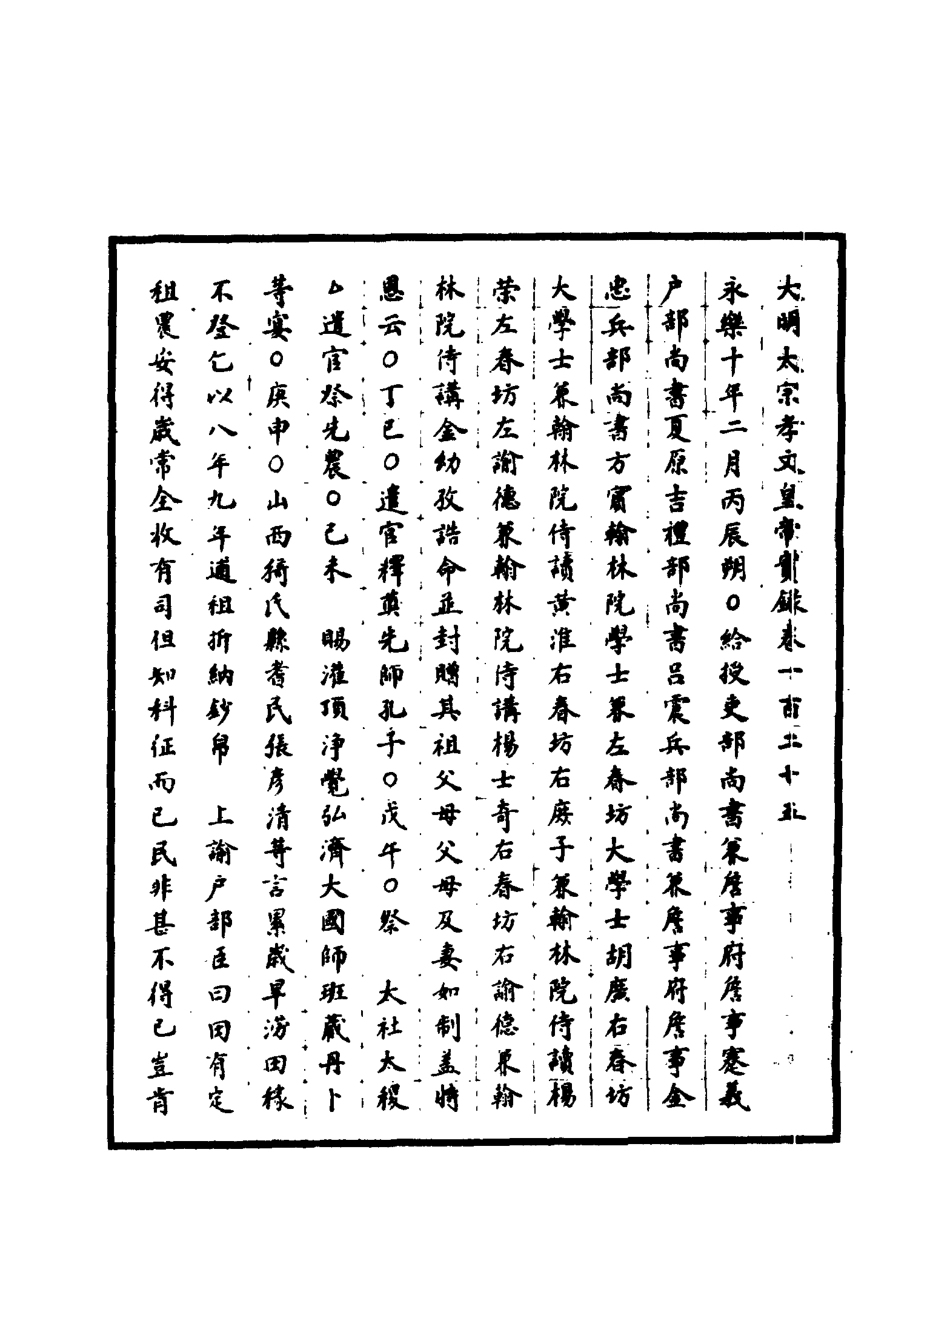 大明太宗孝文皇帝實錄卷一百二十五
永樂十年二月丙辰朔○給授吏部尚書兼詹事府詹事蹇義
户部尚書夏原吉禮部尚書吕震兵部尚書兼詹事府詹事金
忠兵部尚書方賓翰林院學士兼左春坊大學士胡廣右春坊
大學士兼翰林院侍讀黄淮右春坊右庶子兼翰林院侍讀楊
荣左春坊左諭德兼翰林院侍講楊士奇右春坊右諭德兼翰
林院侍講金幼孜誥命並封贈其祖父母父母及妻如制盖特
恩云○丁巳○遣官釋奠先師孔子○戊午○祭 太社太稷
遣官祭先農○己未 賜灌頂净覺弘濟大國師班蔵丹卜
等宴○庚申○山西猗氏縣耆民張彦清等言累歲旱澇田稼
不登乞以八年九年逋租折納鈔帛 上諭户部臣曰田有定
租農安得歲常全收有司但知科征而已民非甚不得已豈肯